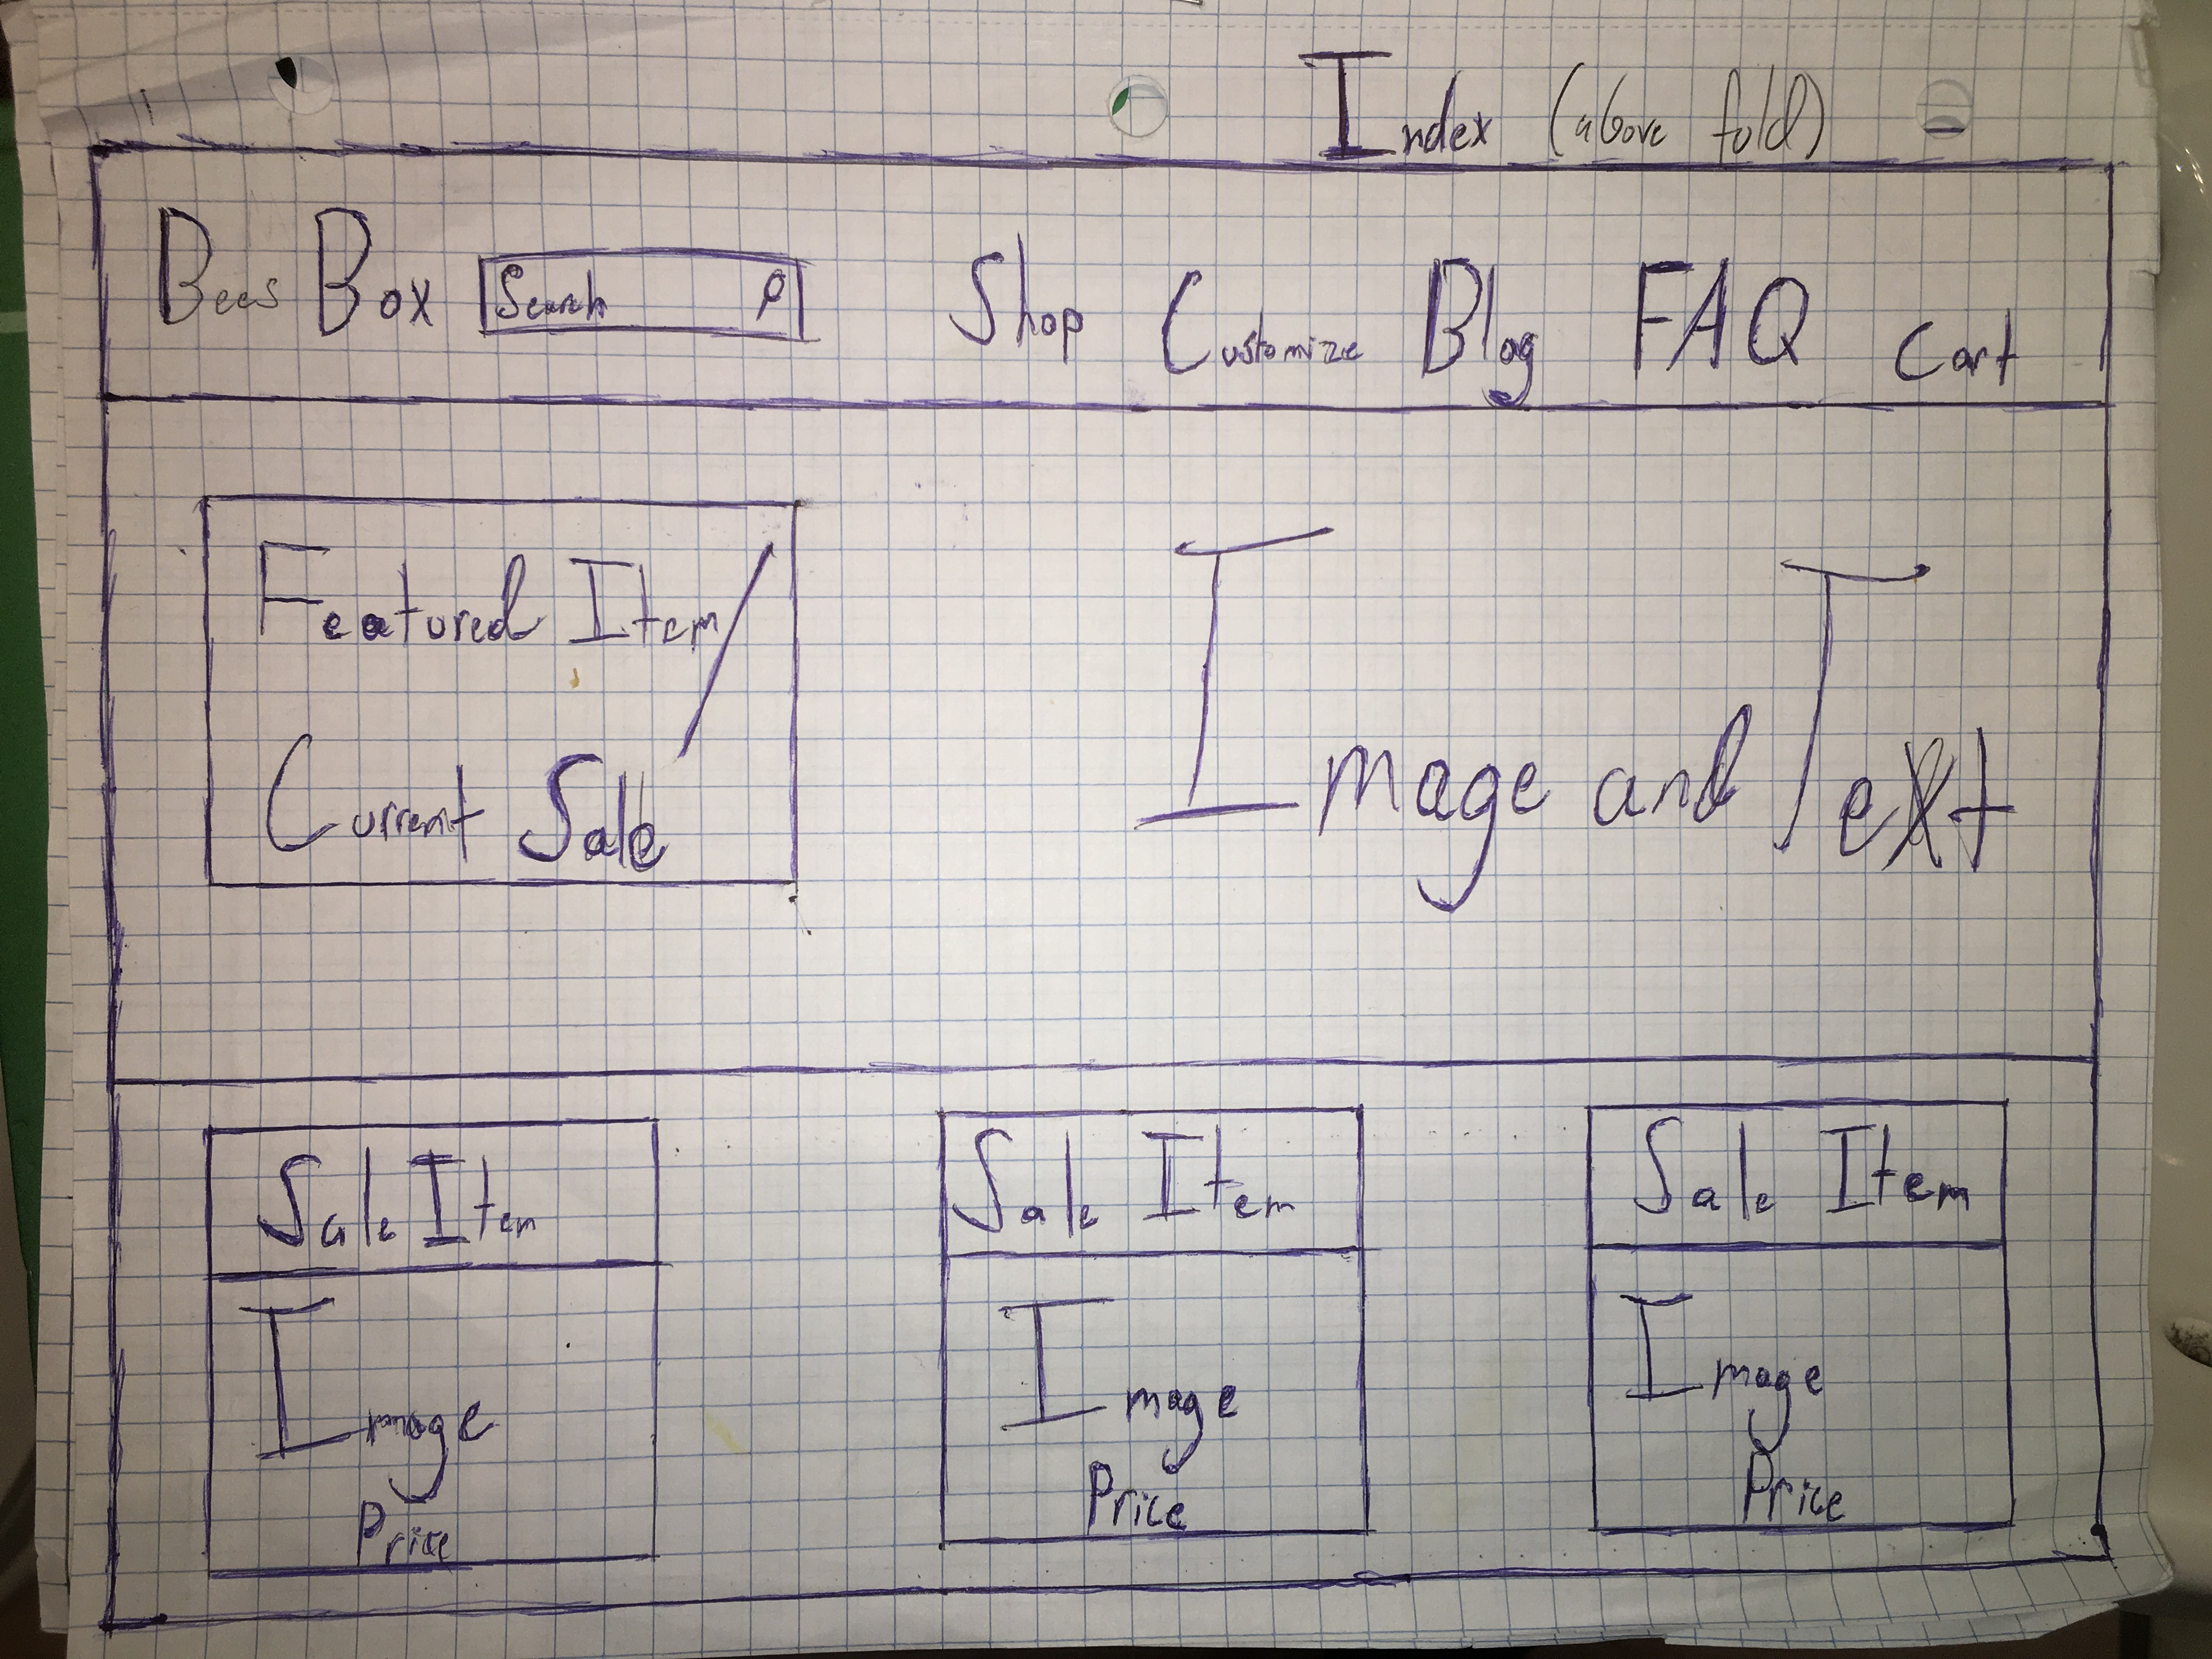 Index (above fold)
Bees Box Search Shop Customize Blog FAQ Cart
Featured Item/
Current Sale
Image and Text
Sale Item
Image
Price
Sale Item
Image
Price
Sale Item
Image
Price